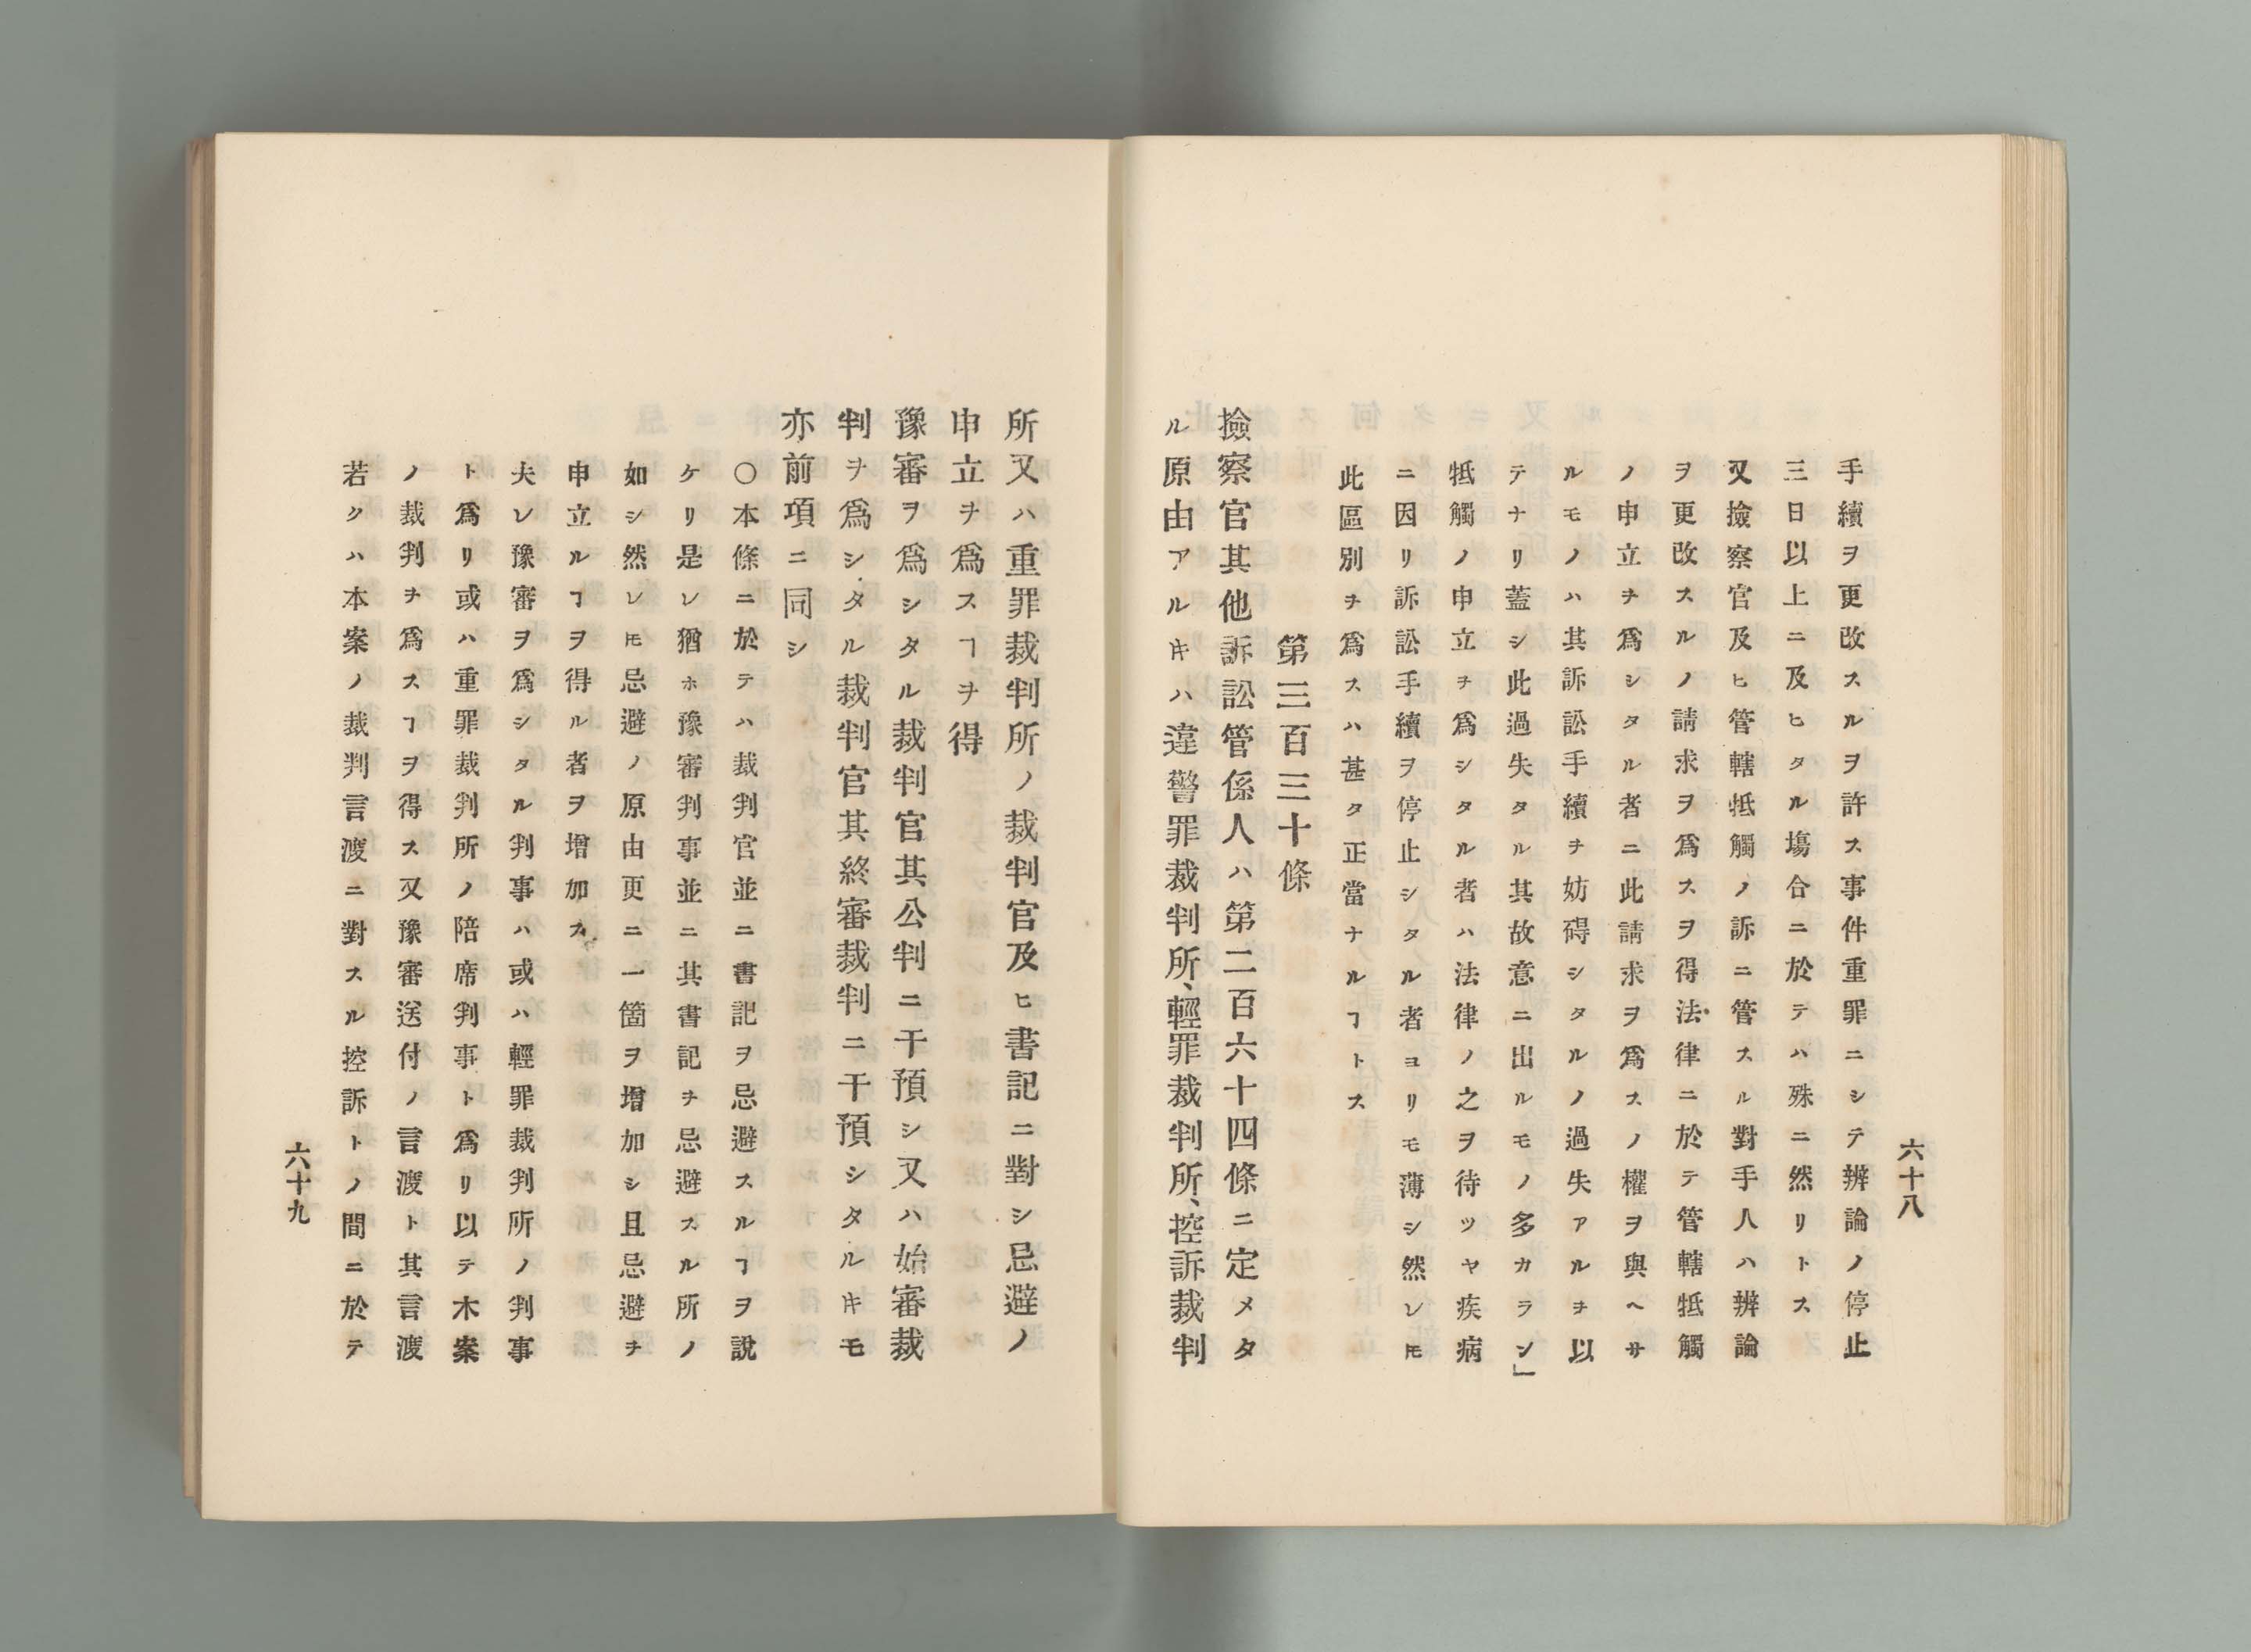 六十八
手續ヲ更改スルヲ許ス事件重罪ニシテ辨論ノ停止
三日以上ニ及ヒタル塲合ニ於テハ殊ニ然リトス
又撿察官及ヒ管轄牴觸ノ訴ニ管スル對手人ハ辨論
ヲ更改スルノ請求ヲ爲スヲ得法律ニ於テ管轄牴觸
ノ申立ヲ爲シタル者ニ此請求ヲ爲スノ權ヲ與ヘサ
ルモノハ其訴訟手續ヲ妨碍シタルノ過失アルヲ以
テナリ蓋シ此過失タル其故意ニ出ルモノ多カラン」
牴觸ノ申立ヲ爲シタル者ハ法律ノ之ヲ待ツヤ疾病
ニ因リ訴訟手續ヲ停止シタル者ヨリモ薄シ然レ𪜈
此區別ヲ爲スハ甚タ正當ナルヿトス
第三百三十條
撿察官其他訴訟管係人ハ第二百六十四條ニ定メタ
ル原由アルキハ違警罪裁判所、輕罪裁判所、控訴裁判
所又ハ重罪裁判所ノ裁判官及ヒ書記ニ對シ忌避ノ
申立ヲ爲スヿヲ得
豫審ヲ爲シタル裁判官其公判ニ干預シ又ハ始審裁
判ヲ爲シタル裁判官其終審裁判ニ干預シタルキモ
亦前項ニ同シ
〇本條ニ於テハ裁判官並ニ書記ヲ忌避スルヿヲ說
ケリ是レ猶ホ豫審判事並ニ其書記ヲ忌避スル所ノ
如シ然レ𪜈忌避ノ原由更ニ一箇ヲ增加シ且忌避ヲ
申立ルヿヲ得ル者ヲ增加ス
夫レ豫審ヲ爲シタル判事ハ或ハ輕罪裁判所ノ判事
ト爲リ或ハ重罪裁判所ノ陪席判事ト爲リ以テ木案
ノ裁判ヲ爲スヿヲ得ス又豫審送付ノ言渡ト其言渡
若クハ本案ノ裁判言渡ニ對スル控訴トノ間ニ於テ
六十九